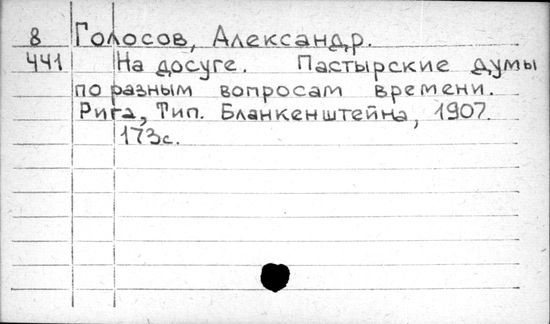 8 Голосов, Александр.
441 На досуге. Пастырские думы
по разным вопросам времени.
Рига, Тип. Бланкенштейна, 1907.
173с.